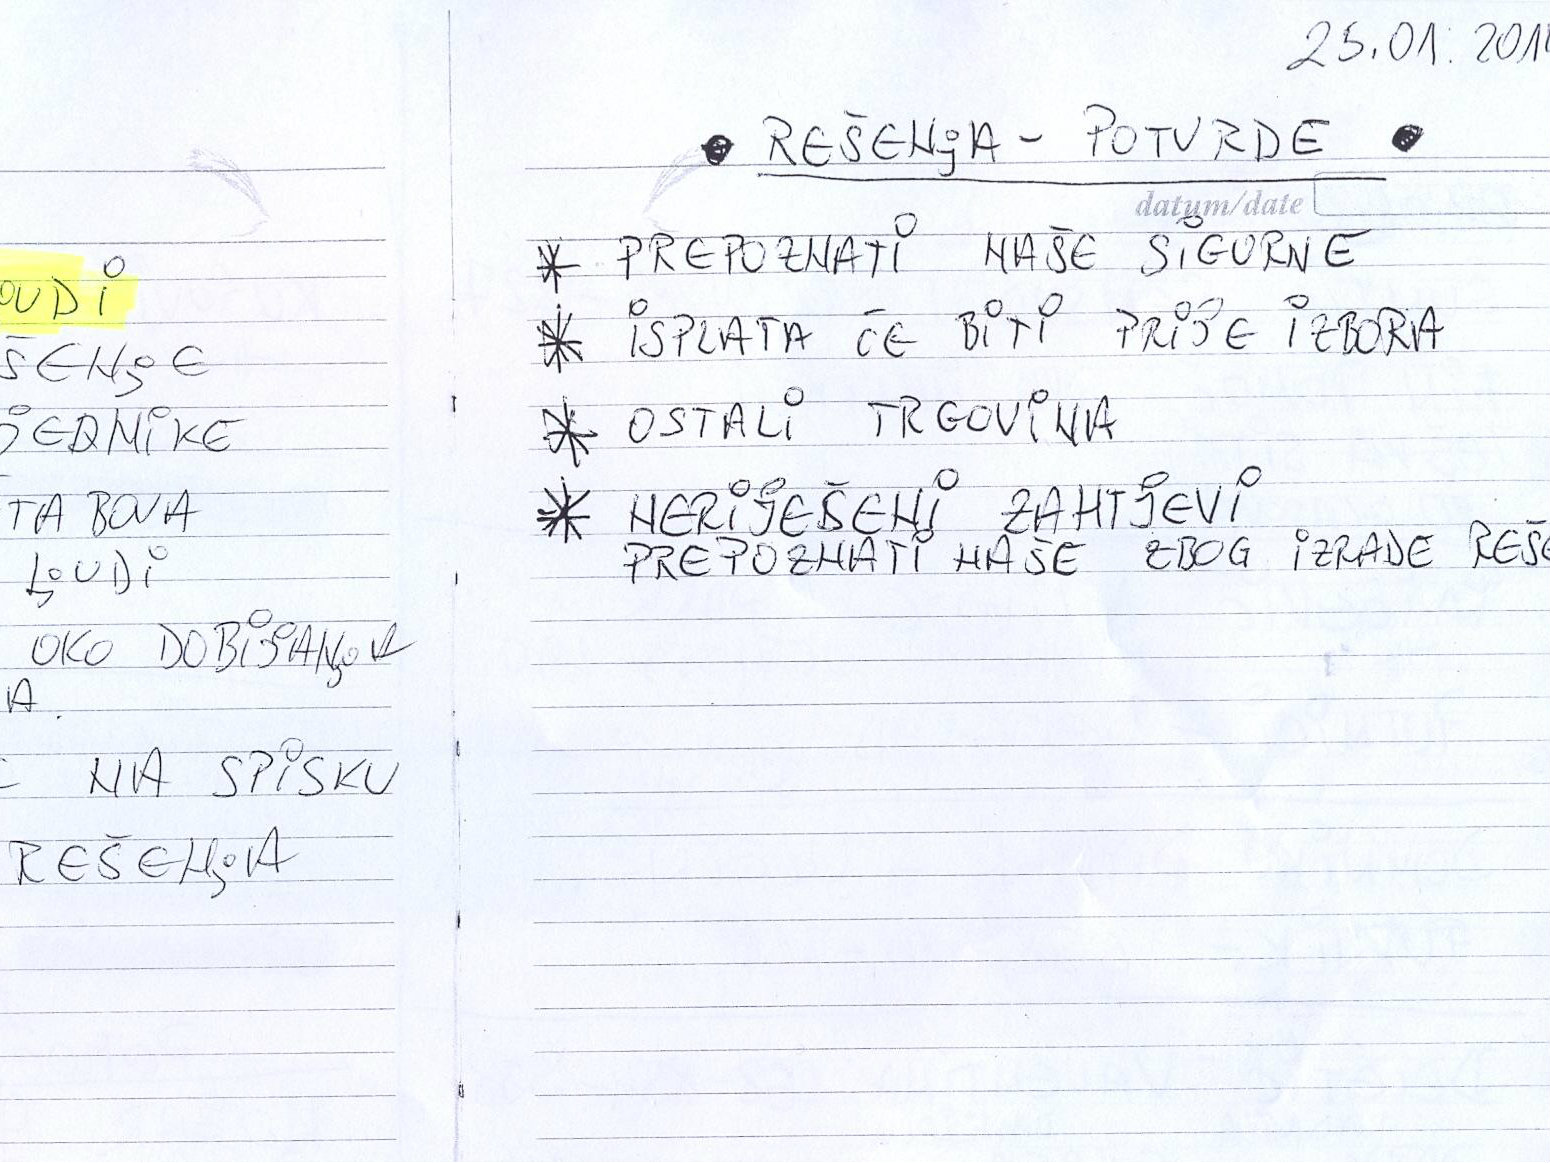 OUDI
ŠENJE
JEDNIKE
TABOVA
LJUDI
OKO DOBIJANJA
A.
NA SPISKU
REŠENJA
25.01.201
• REŠENJA - POTVRDE •
datum/date
* PREPOZNATI NAŠE SIGURNE
* ISPLATA ĆE BITI PRIJE IZBORA
* OSTALI TRGOVINA
* NERIJEŠENI ZAHTJEVI
PREPOZNATI NAŠE ZBOG IZRADE REŠE